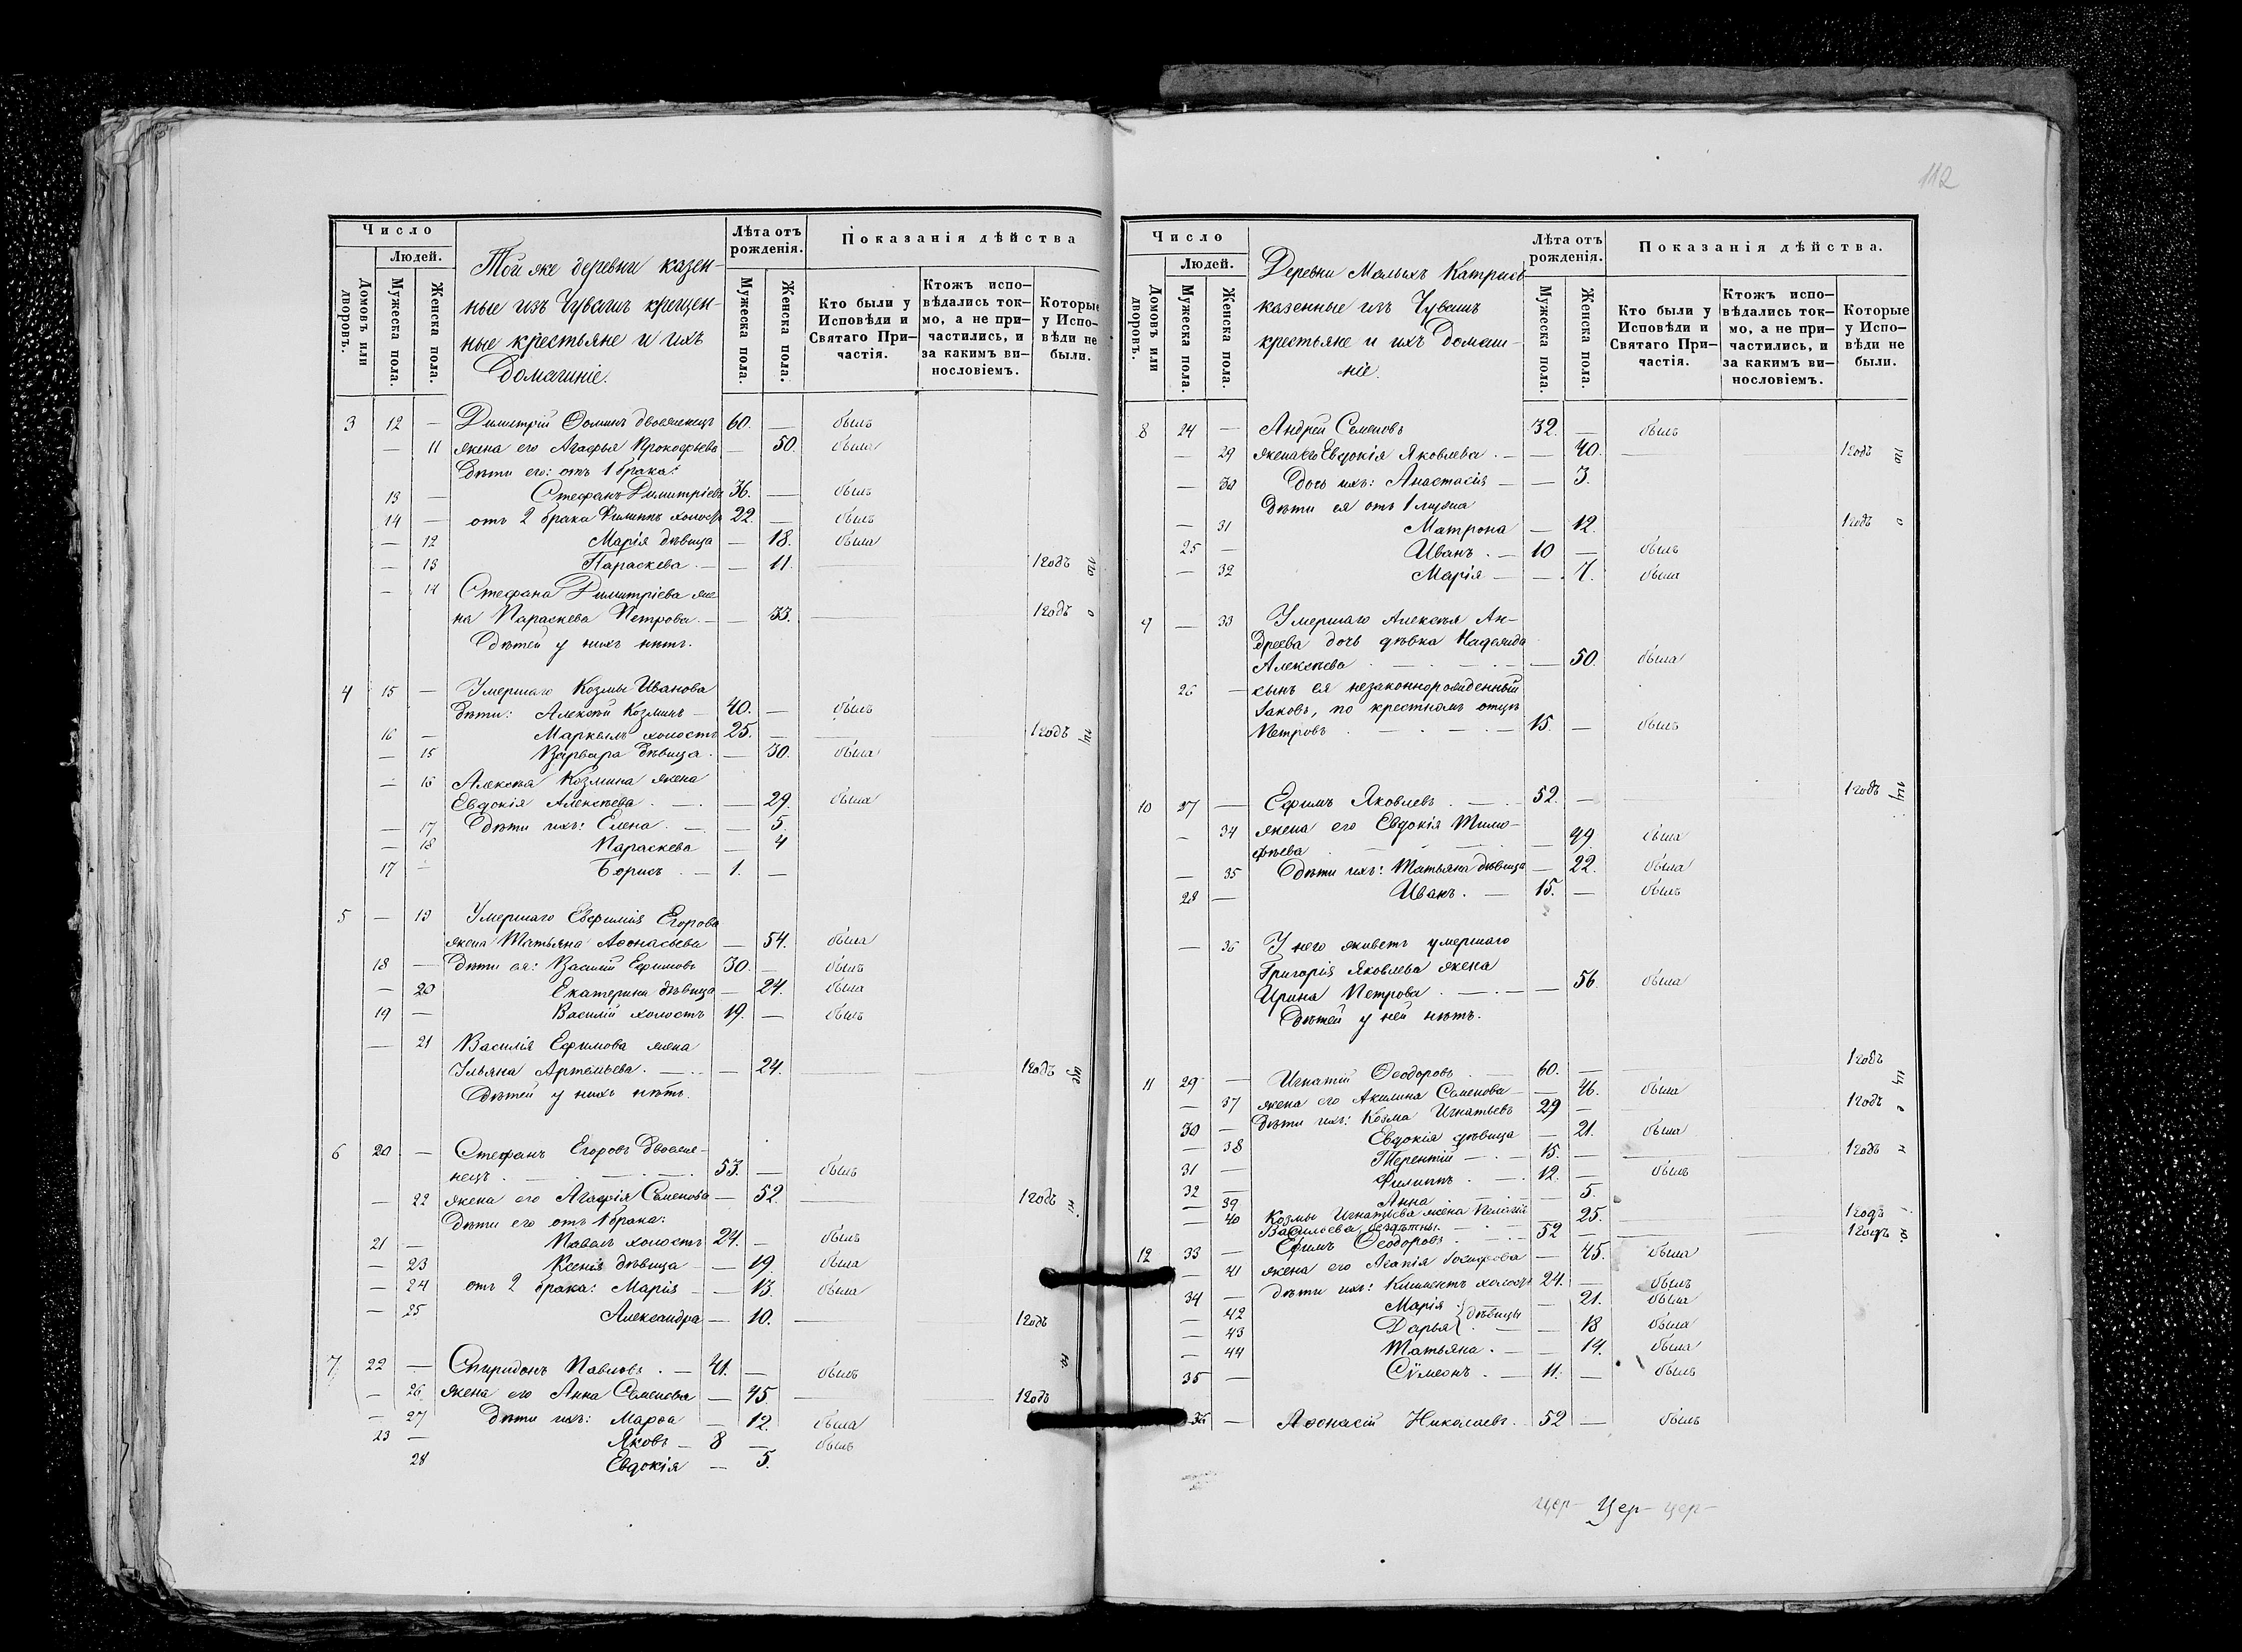 112
Число
Людей.
Домовъ или дворовъ.
Мужеска пола.
Женска пола.
Той же деревни казен-
ные изъ Чувашъ крещен-
ные крестьяне и ихъ
Домашніе.
Лѣта отъ рожденія.
Мужеска пола.
Женска пола.
Показанія дѣйства
Кто были у Исповѣди и Святаго При-частія.
Ктожъ испо-вѣдались ток-мо, а не при-частились, и за какимъ ви-нословіемъ.
Которые у Испо-вѣди не были.
3 12 — Димитрій Ѳоминъ двоеженецъ 60. — былъ
— 11 жена его Агафья Прокофьева — 50. была
Дѣти его: отъ 1 брака:
13 — Стефанъ Димитріевъ 36. — былъ
14 — отъ 2 брака Филиппъ холостъ 22. — былъ
— 12 Марія дѣвица — 18. была
— 13 Параскева — 11. — 1 годъ по
— 14 Стефана Димитріева же-
на Параскева Петрова — 33. — 1 годъ о
Дѣтей у нихъ нѣтъ.
4 15 — Умершаго Козмы Иванова
дѣти: Алексѣй Козминъ — 40. — былъ
16 — Маркелъ холостъ 25. — 1 годъ
— 15 Варвара дѣвица — 30. была
— 16 Алексѣя Козмина жена
Евдокія Алексѣева — 29. была
— 17 Дѣти ихъ: Елена — 5.
— 18 Параскева — 4
17 — Борисъ — 1. —
5 — 19 Умершаго Евфимія Егорова
жена Татьяна Аѳонасьева — 54. была
18 — Дѣти ея: Василій Ефимовъ 30. — былъ
— 20 Екатерина дѣвица — 24. была
19 — Василій холостъ 19. — былъ
— 21 Василія Ефимова жена
Ульяна Артемьева — 24. — 1 годъ
Дѣтей у нихъ нѣтъ.
6 20 — Стефанъ Егоровъ двоеже-
нецъ — 53. — былъ
— 22 жена его Агафія Семенова — 52. — 1 годъ
Дѣти его отъ 1 брака:
21 — Павелъ холостъ 24. — былъ
— 23 Ксенія дѣвица — 19. была
— 24 отъ 2 брака: Марія — 13. была
— 25 Александра — 10. — 1 годъ
7 22 — Спиридонъ Павловъ — 41. — былъ
— 26 жена его Анна Семенова — 45. — 1 годъ
— 27 Дѣти ихъ: Марѳа — 12. была
23 — Яковъ — 8 — былъ
28 Евдокія — 5.
Число
Людей.
Домовъ или дворовъ.
Мужеска пола.
Женска пола.
Деревни Малыхъ Катрась
казенные изъ Чувашъ
крестьяне и ихъ Домаш-
ніе.
Лѣта отъ рожденія.
Мужеска пола.
Женска пола.
Показанія дѣйства.
Кто были у Исповѣди и Святаго При-частія.
Ктожъ испо-вѣдались ток-мо, а не при-частились, и за какимъ ви-нословіемъ.
Которые у Испо-вѣди не были.
8 24 — Андрей Семеновъ 32. — былъ
— 29 жена его Евдокія Яковлева — 40. — 1 годъ по
— 30 Дочь ихъ: Анастасія — 3.
Дѣти ея отъ 1 мужа
— 31 Матрона — 12. 1 годъ о
25 — Иванъ — 10 — былъ
— 32 Марія — 7. была
9 — 33 Умершаго Алексѣя Ан-
дреева дочь дѣвка Надежда
Алексѣева — 50. была
26 — сынъ ея незаконнорожденный
Іаковъ, по крестномъ отцѣ
Петровъ — 15. — былъ
10 27 — Ефимъ Яковлевъ — 52. — 1 годъ
— 34 жена его Евдокія Тимо-
фѣева — 49. была
— 35 Дѣти ихъ: Татьяна дѣвица — 22. была
28 — Иванъ — 15. — былъ
— 36 У него живетъ умершаго
Григорія Яковлева жена
Ирина Петрова — 56. была
Дѣтей у ней нѣтъ.
11 29 — Игнатій Ѳеодоровъ — 60. — 1 годъ
— 37 жена его Акилина Семенова — 46. была
30 — Дѣти ихъ: Козма Игнатьевъ 29 — 1 годъ
— 38 Евдокія дѣвица — 21. была
31 — Терентій — 15. — 1 годъ
32 — Филиппъ — 12. — былъ
— 39 Анна — 5.
— 40 Козмы Игнатьева жена Пелагія
Васильева, бездѣтны — 25. — 1 годъ
12 33 — Ефимъ Ѳеодоровъ — 52 — 1 годъ
— 41 жена его Агапія Іосифова — 45. была
34 — Дѣти ихъ: Климентъ холостъ 24. — былъ
— 42 Марія } дѣвицы — 21. была
— 43 Дарья } — 18 была
— 44 Татьяна — 14. была
35 — Сѵмеонъ — 11. — былъ
36 — Аѳонасій Николаевъ 52 — былъ
цер- Цер- цер-